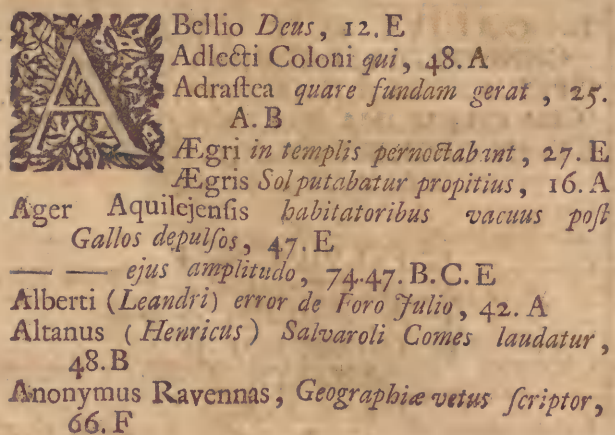 ABellio Deus, 12. E
Adlecti Coloni qui, 48. A
Adraſtea quare fundam gerat, 25.
A. B
Ægri in templis pernoctabant, 27. E
Ægris Sol putabatur propitius, 16. A
Ager Aquilejenſis habitatoribus vacuus poſt
Gallos depulſos, 47. E
— — ejus amplitudo, 74.47. B. C. E
Alberti (Leandri) error de Foro Julio, 42. A
Altanus (Henricus) Salvaroli Comes laudatur,
48. B
Anonymus Ravennas, Geographiæ vetus ſcriptor,
66. F